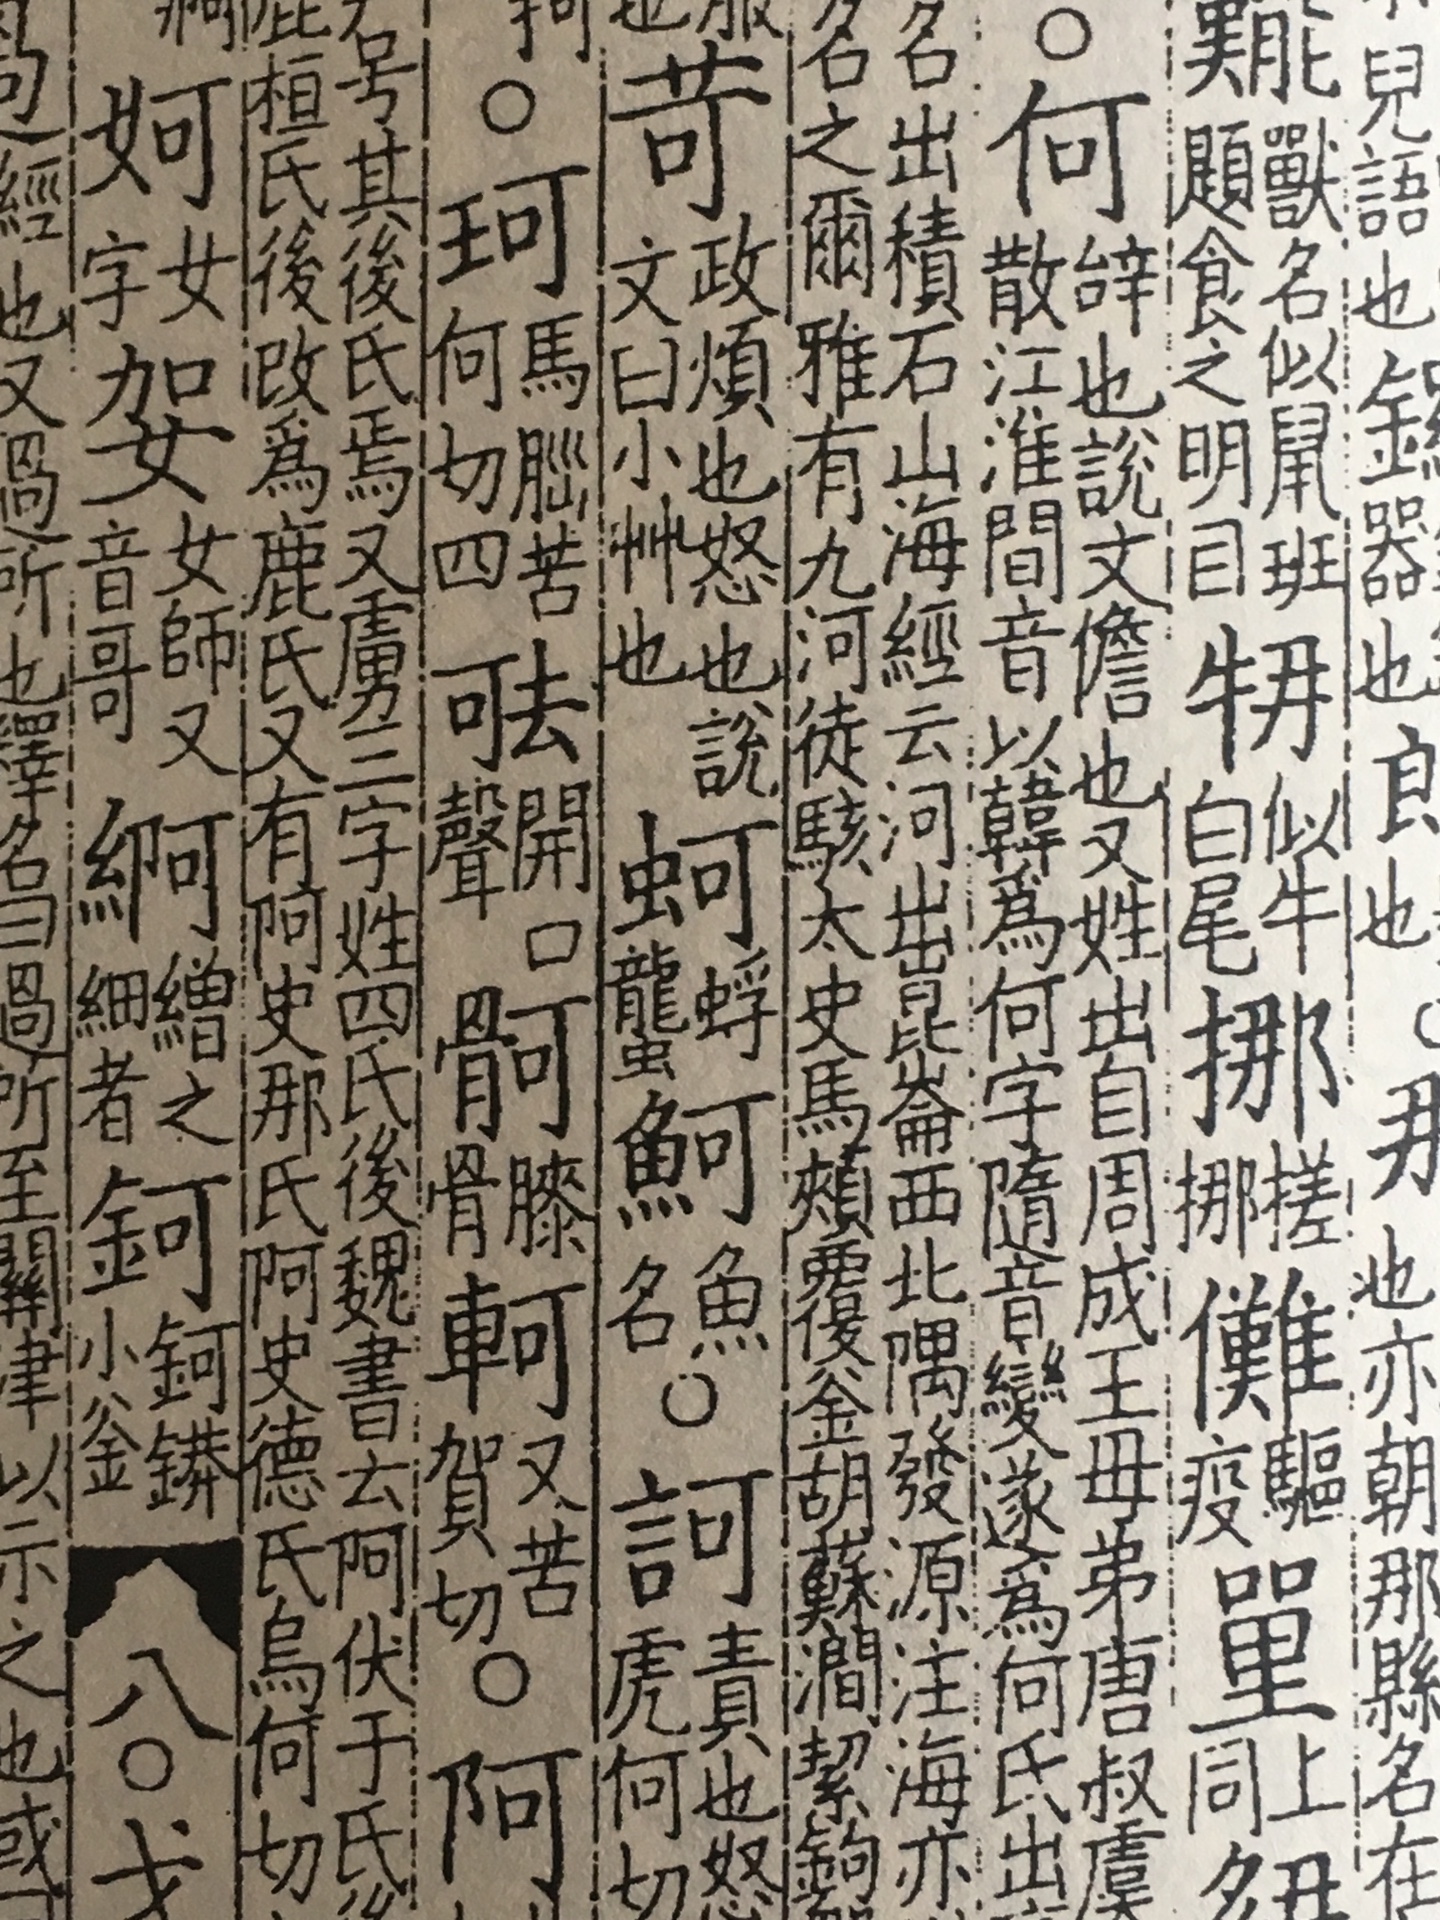 兒語也鑼
器也
良
也
那
也亦朝那縣名在
難能獸名似鼠班
題食之明目
㸹似牛
白尾
挪搓
挪
儺驅
疫
㽬上
同
○何辝也說文儋也又姓出自周成王母弟唐叔虞
散江淮間音以韓爲何字隨音變遂爲何氏出
名出積石山海經云河出崑崙西北隅發源注海亦
名之爾雅有九河徒駭太史馬頰覆釜胡蘇澗絜鉤
服
也苛政煩也怒也說
文曰小艸也
蚵蜉
蠪
魺魚
名○訶責也怒
虎何切
○珂馬𦛁苦
何切四
㰤開口
聲
䯊膝
骨
軻又苦
賀切○阿
号其後氏焉又虜三字姓四氏後魏書去阿伏于氏後
庇桓氏後改爲鹿氏又有阿史那氏阿史德氏烏何切
妸女
字
妿女師又
音哥
䋍繒之
細者
鈳鈳䥈
小釜
八○戈
過經也又過所也釋名曰過所至關津以示之也或